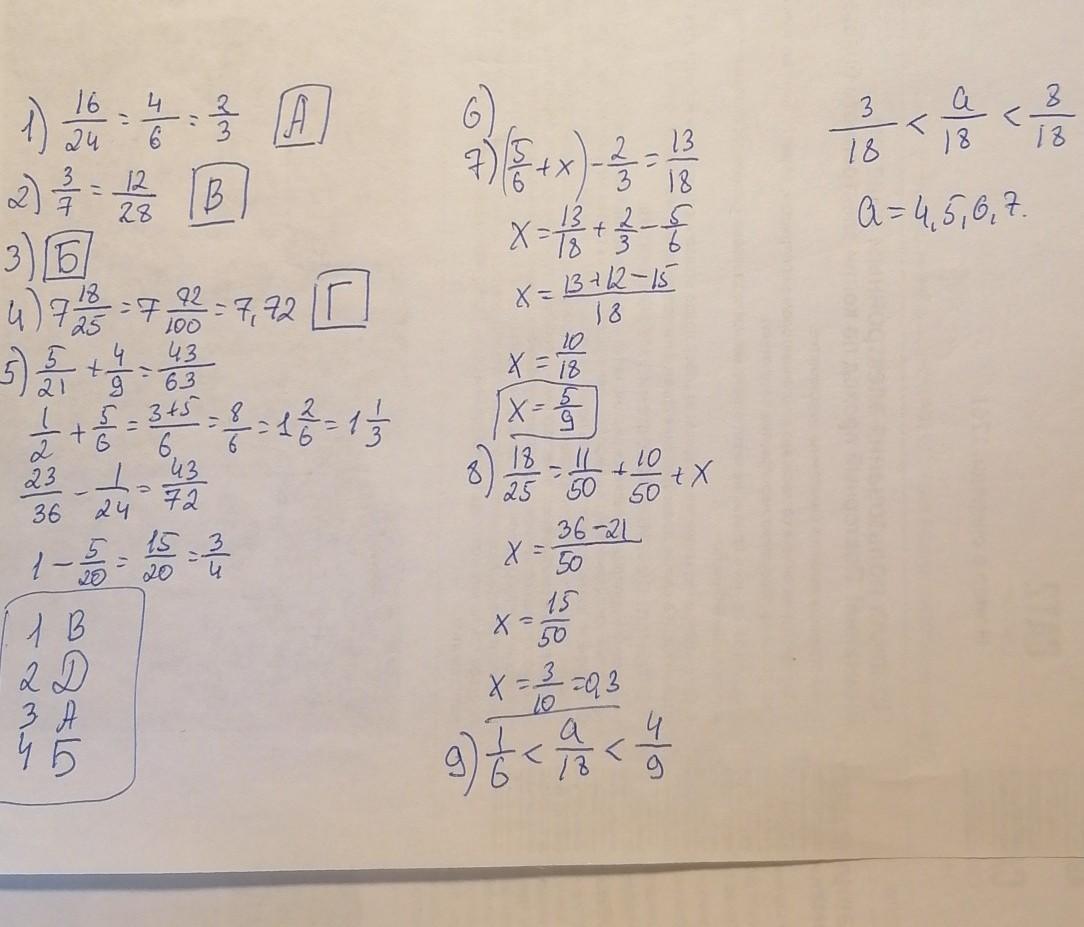 1) 16/24 = 4/6 = 2/3 А
2) 3/7 = 12/28 В
3) Б
4) 7 18/25 = 7 72/100 = 7,72 Г
5) 5/21 + 4/9 = 43/63
1/2 + 5/6 = 3+5/6 = 8/6 = 1 2/6 = 1 1/3
23/36 - 1/24 = 43/72
1 - 5/20 = 15/20 = 3/4
1 В
2 Д
3 А
4 Б
6)
7) (5/6 + x) - 2/3 = 13/18
x = 13/18 + 2/3 - 5/6
x = 13+12-15/18
x = 10/18
x = 5/9
8) 18/25 = 11/50 + 10/50 + x
x = 36-21/50
x = 15/50
x = 3/10 = 0,3
9) 1/6 < a/18 < 4/9
3/18 < a/18 < 8/18
a = 4, 5, 6, 7.